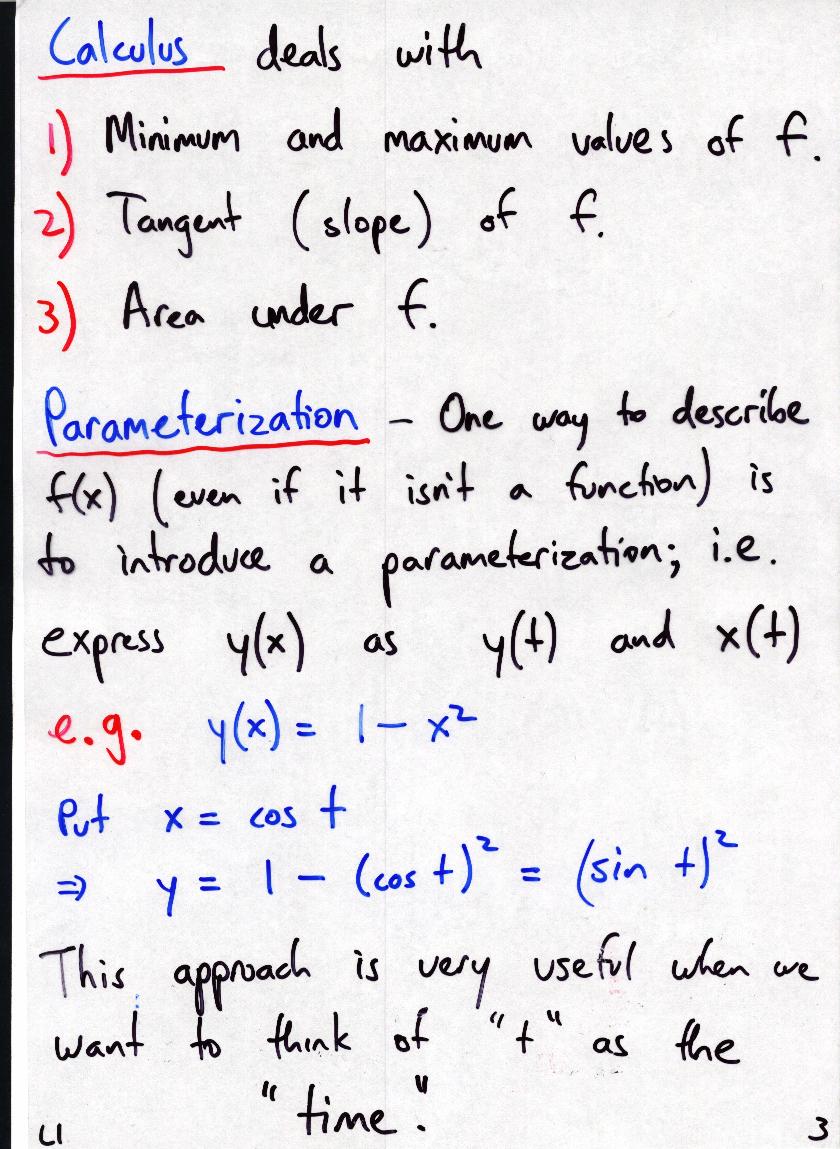 Calculus deals with
1) Minimum and maximum values of f.
2) Tangent (slope) of f.
3) Area under f.
Parameterization - One way to describe
f(x) (even if it isn't a function) is
to introduce a parameterization; i.e.
express y(x) as y(t) and x(t)
e.g. y(x) = 1 - x²
Put x = cos t
⇒ y = 1 - (cos t)² = (sin t)²
This approach is very useful when we
want to think of "t" as the
"time."
L1 3